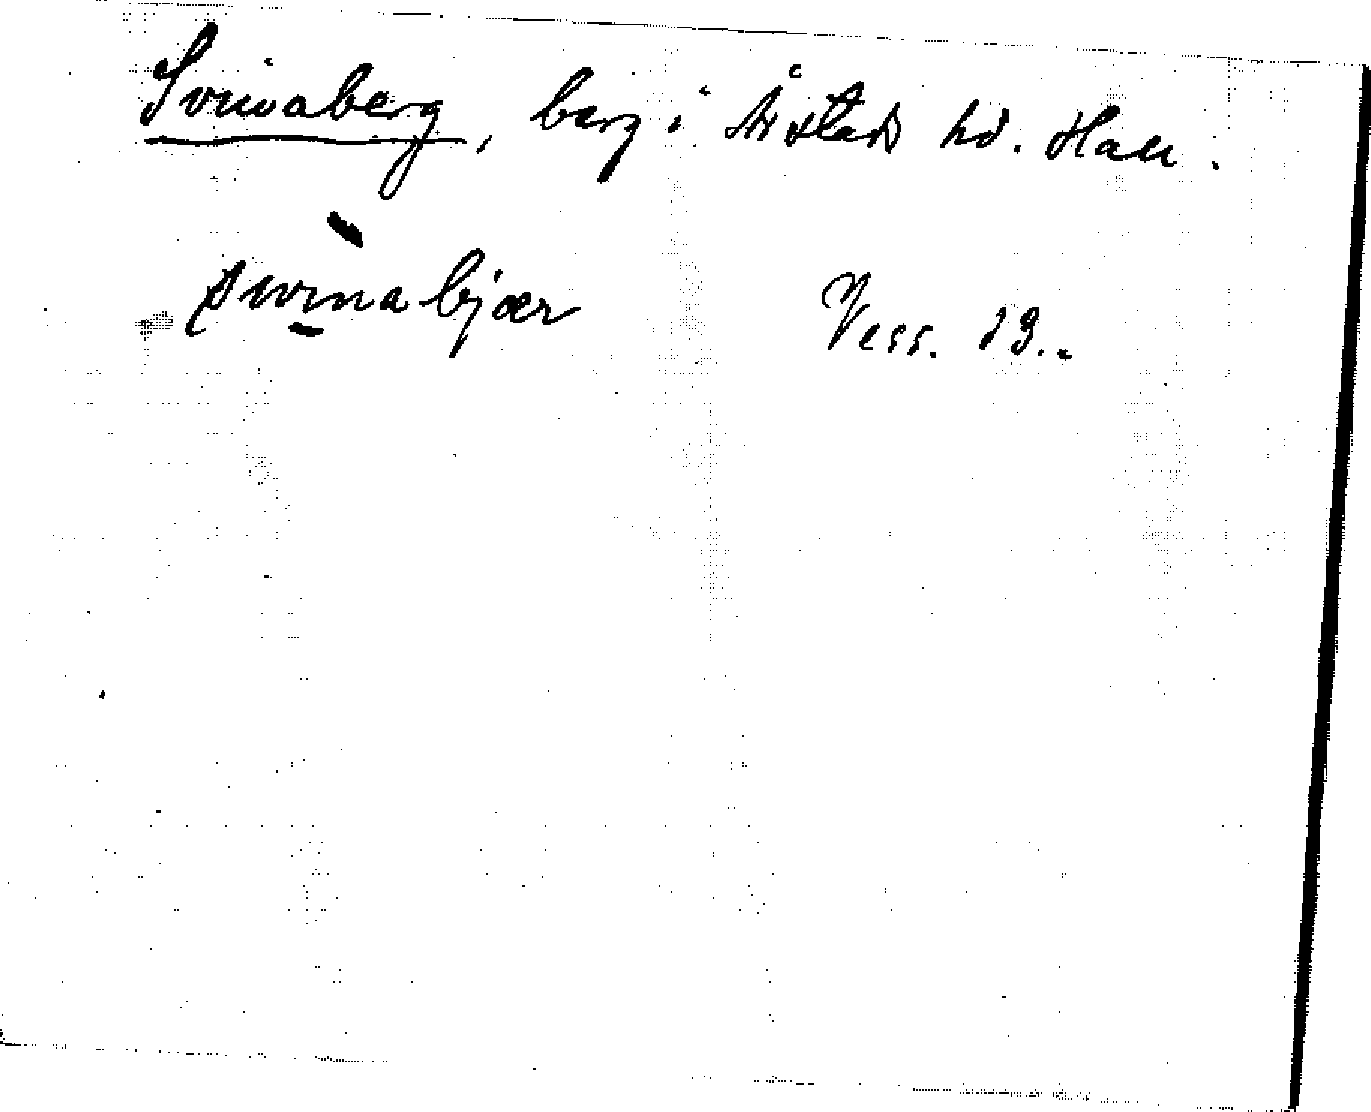 Svinaberg, berg i Årstads hd. Hall.
svinabjær Vess. 13..